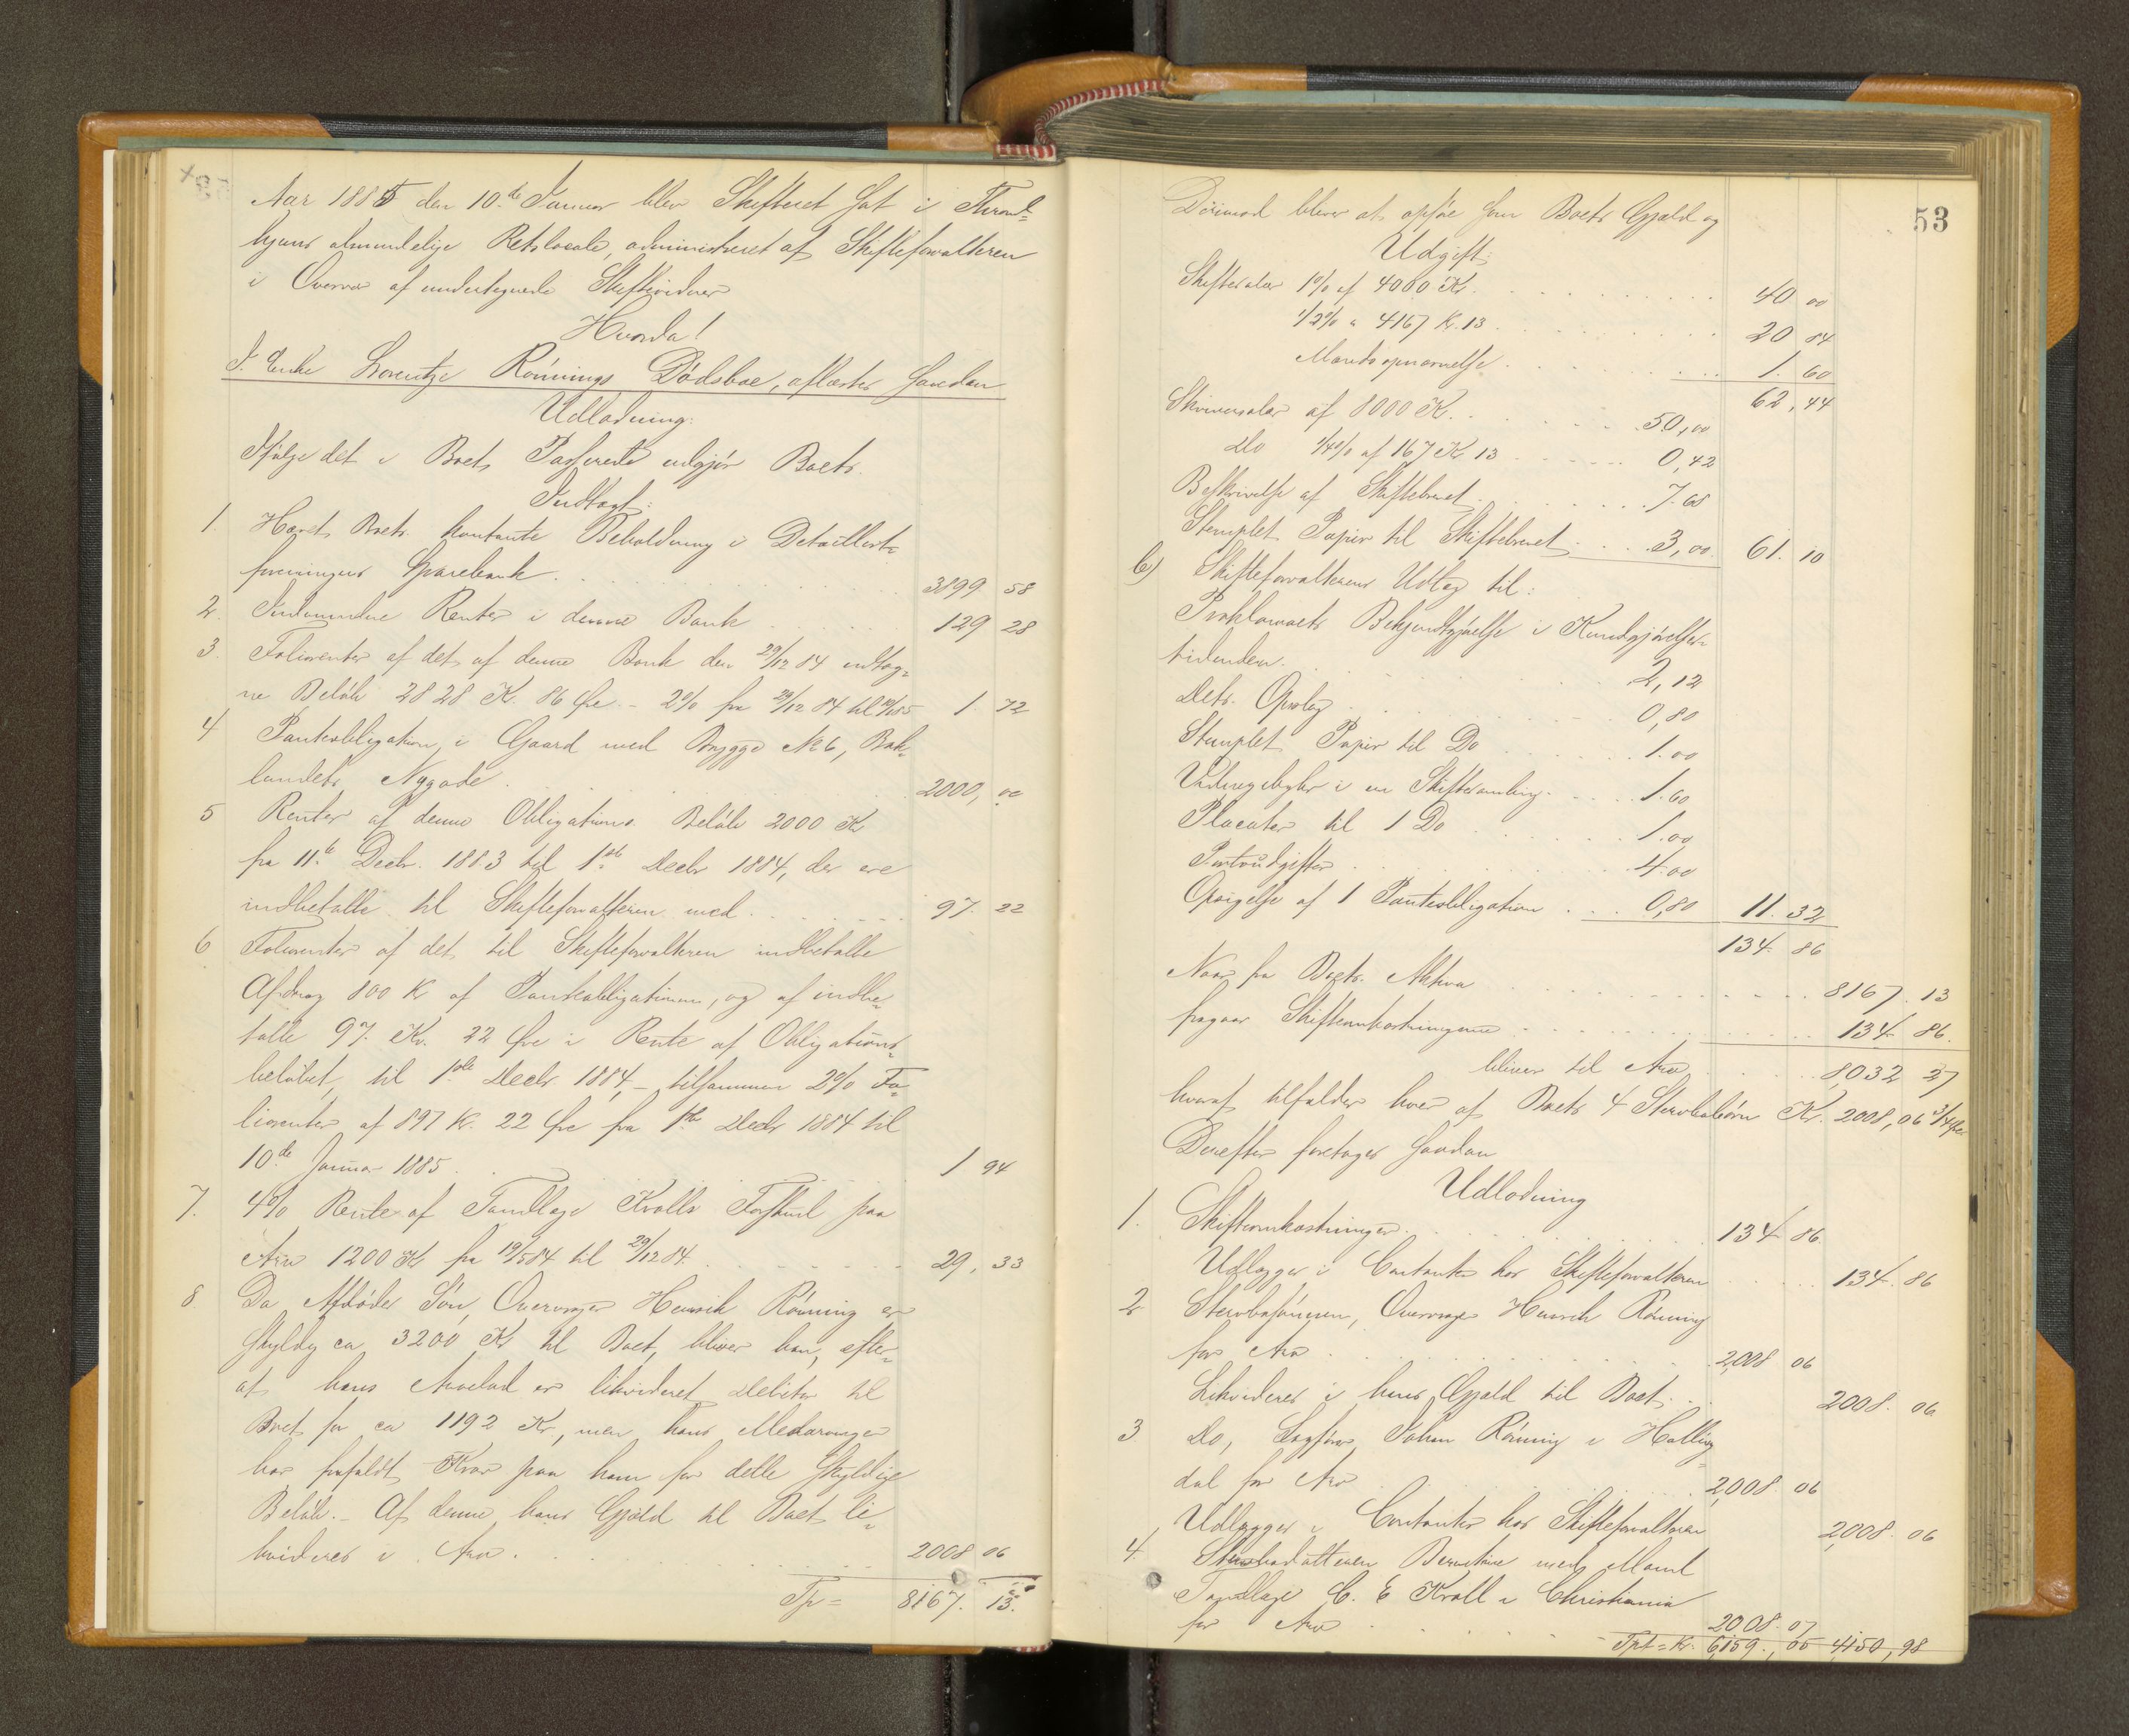 Aar 1885 den 10.de Januar blev Skifteret sat i Thrond-
hjems almindelige Retslocale, administreret af Skifteforvalteren
i Overvær af undertegnede Skiftevidner
Hvorda!
I Enke Lorentze Rönnings Dödsboe, afluttes saadan
Udlodning:
Ifölge det i Boet Passerede udgjör Boets
Indtægt:
1. Havet Boets kontante Beholdning i Detaillist-
foreningens Sparebank . . . 3899 58
2. Indvundne Renter i denne Bank . . . 129 28
3. Foliorenter af det af denne Bank den 29/12 84 udtag-
ne Belöb 2828 K. 86 Øre - 2% fra 29/12 84 til 10/1 85 1. 72
4 Panteobligation i Gaard med Brygge No 6, Bak-
landets Nygade . . . 2000, 00
5 Renter af denne Obligations Belöb 2000 Kr
fra 11.te Decbr. 1883 til 1ste Decbr 1884, der ere
indbetalte til Skifteforvalteren med . . . 97. 22
6 Foliorenter af det til Skifteforvalteren indbetalte
Afdrag 800 Kr af Panteobligationen, og af indbe-
talte 97 Kr. 22 Øre i Rente af Obligations-
belöbet, til 1ste Decbr 1884, - tilsammen 2% Fo-
liorenter af 897 Kr. 22 Øre fra 1ste Decbr 1884 til
10.de Januar 1885 . . . 1 94
7. 4% Rente af Tandlæge Krolls Forskud paa
Arv 1200 Kr fra 19/5 84 til 29/12 84. . . . 29, 33
8. Da Afdödes Sön, Overvrager Henrik Rönning er
skyldig ca 3200 Kr til Boet, bliver han, efter-
at hans Arvelod er likvideret Debitor til
Boet for ca 1192 Kr, men hans Medarvinger
har frafaldt Krav paa ham for dette skyldige
Belöb. - Af denne hans Gjæld til Boet li-
kvideres i Arv . . . 2008 06
Tp = 8167. 13.
53
Derimod bliver at opföre som Boets Gjæld og
Udgift:
Skiftesalær 1% af 4000 Kr. . . . 40 00
1/2% " 4167 Kr. 13 . . . 20 84
Mandsopnævnelse . . . 1. 60
62, 44
Skriversalær af 8000 K. . . . 50,00
Do 1/4% af 167 Kr 13 . . . 0,42
Beskrivelse af Skiftebrevet . . . 7.68
Stemplet Papir til Skiftebrevet . . . 3,00. 61. 10
b) Skifteforvalterens Udlæg til:
Proklamaets Bekjendtgjörelse i Kundgjörelses-
tidenden . . . 2,12
Dets Opslag . . . 0,80
Stemplet Papir til Do . . . 1.00
Vidnegebyhr i en Skiftesamling . . . 1.60
Placater til 1 Do . . . 1.00
Portoudgifter . . . 4.00
Opsigelse af 1 Panteobligation . . . 0,80 11. 32
134. 86
Naar fra Boets Aktiva . . . 8167. 13
fragaar Skifteomkostningerne . . . 134. 86.
bliver til Arv . . . 8032 27
hvoraf tilfalder hver af Boets 4 Stervbobörn Kr. 2008, 06 3/4 Øre
Derefter foretages saadan
Udlodning
1. Skifteomkostninger . . . 134 86.
Udlægges i Contanter hos Skifteforvalteren . . . 134. 86
2 Stervbosönnen, Overvrager Henrik Rönning
for Arv . . . 2,008 06
Likvideres i hans Gjæld til Boet . . . 2008. 06
3 Do, Sagförer Johan Rönning i Halling-
dal for Arv . . . 2,008. 06
Udlægges i Contanter hos Skifteforvalteren 2,008. 06
4. Stervbodatteren Berntine med Mand
Tandlæge C. E Kroll i Christiania
for Arv . . . 2008. 07
Tpt = Kr. 6,159., 05 4,150, 98